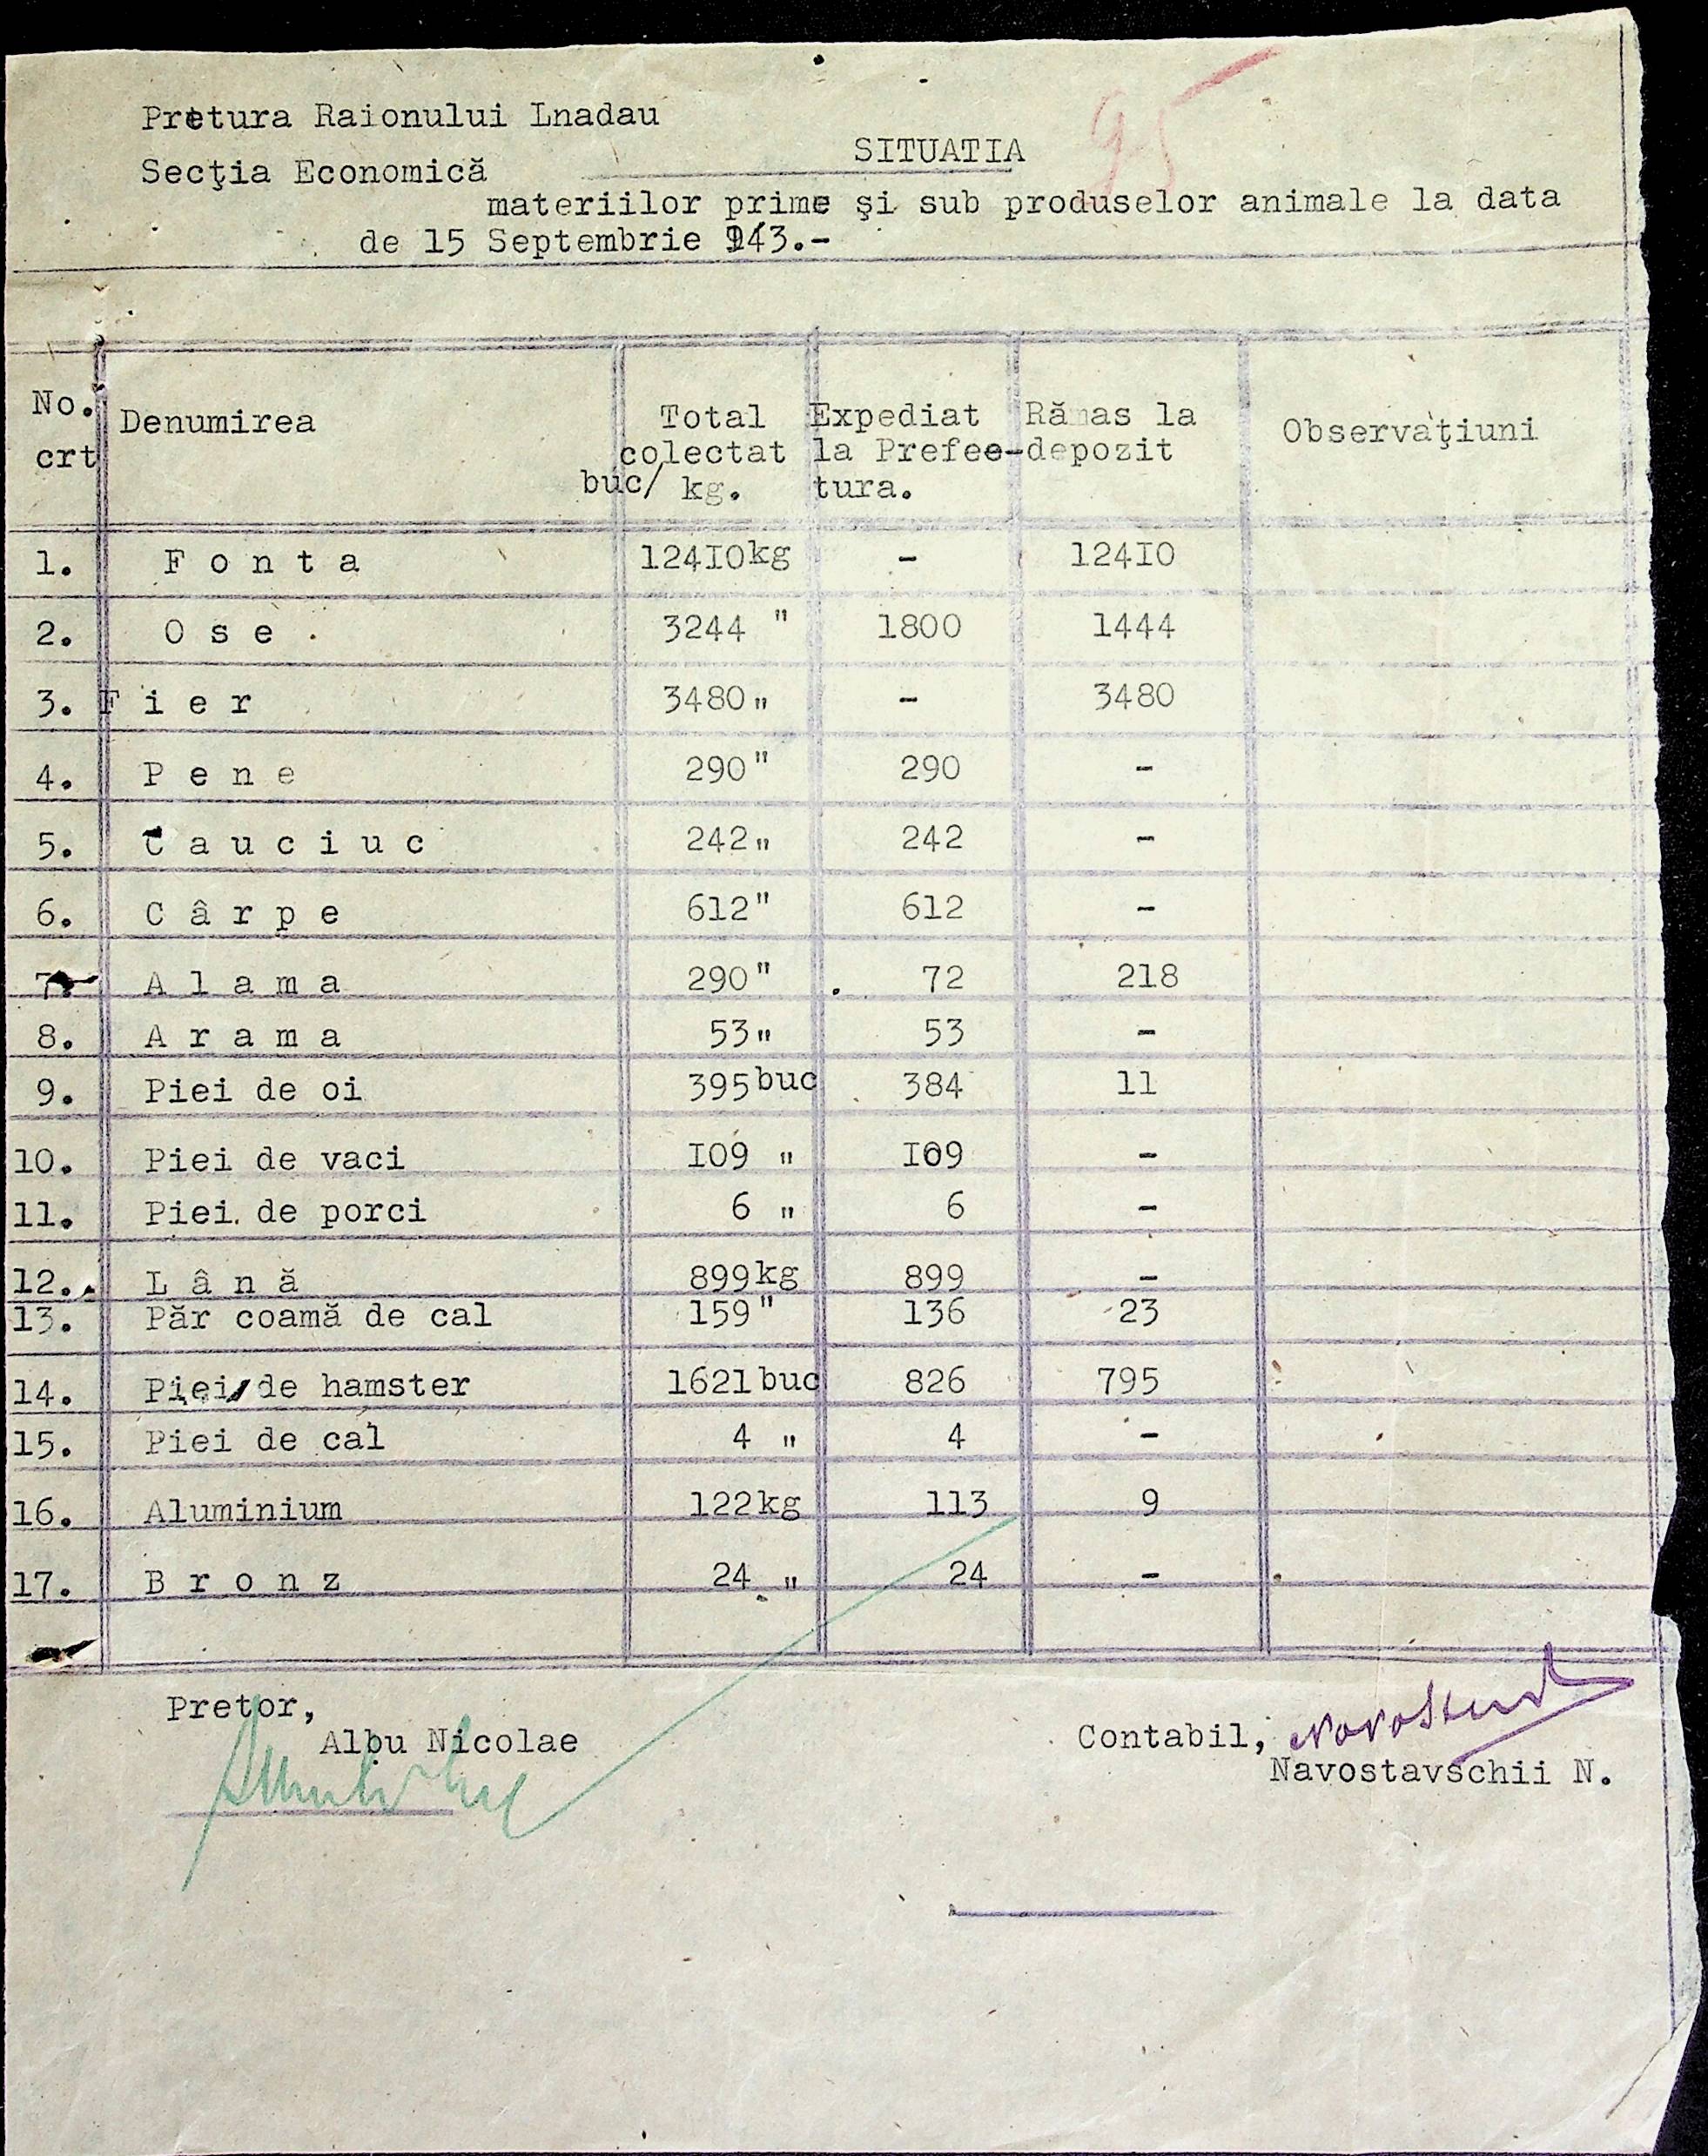 95
Pretura Raionului Lnadau
SITUATIA
Secţia Economică
materiilor prime şi sub produselor animale la data
de 15 Septembrie 943.-
No. crt Denumirea Total colectat buc/ kg. Expediat la Prefee-tura. Rămas la depozit Observaţiuni
1. Fonta 124I0kg - 124I0
2. Ose 3244 " 1800 1444
3. Fier 3480 " - 3480
4. Pene 290 " 290 -
5. Cauciuc 242 " 242 -
6. Cârpe 612 " 612 -
7. Alama 290 " 72 218
8. Arama 53 " 53 -
9. Piei de oi 395 buc 384 11
10. Piei de vaci I09 " I09 -
11. Piei de porci 6 " 6 -
12. Lână 899 kg 899 -
13. Păr coamă de cal 159 " 136 23
14. Piei de hamster 1621 buc 826 795
15. Piei de cal 4 " 4 -
16. Aluminium 122 kg 113 9
17. Bronz 24 " 24 -
Pretor,
Albu Nicolae
Contabil,
Navostavschii N.